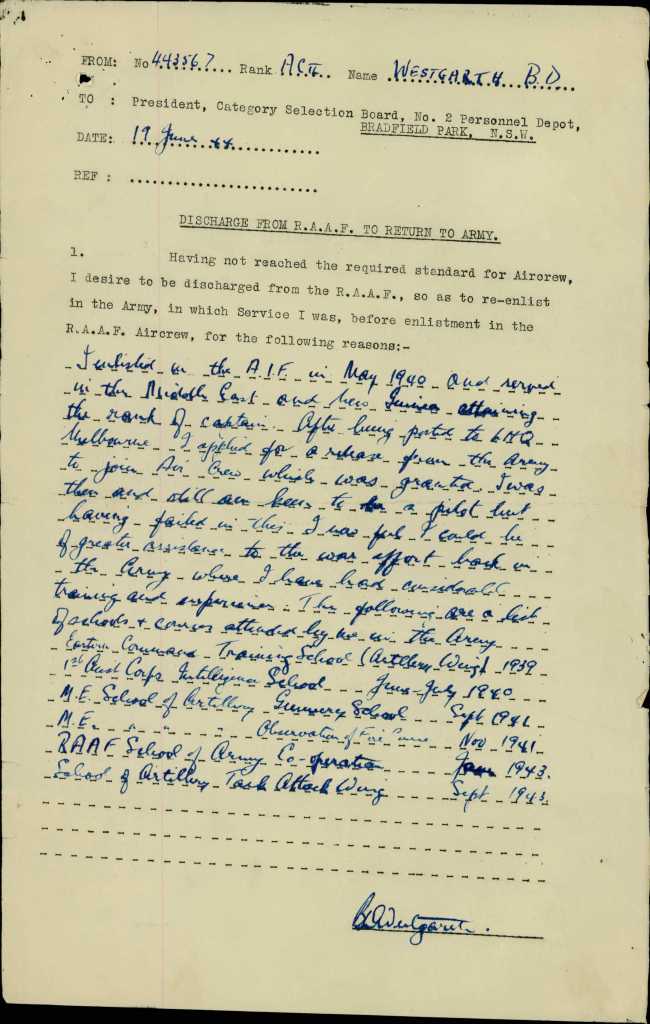 FROM: No 443567 Rank AC II Name WESTGARTH B D
TO : President, Category Selection Board, No. 2 Personnel Depot,
BRADFIELD PARK, N.S.W.
DATE: 19 June 44
REF :
DISCHARGE FROM R.A.A.F. TO RETURN TO ARMY.
1. Having not reached the required standard for Aircrew,
I desire to be discharged from the R.A.A.F., so as to re-enlist
in the Army, in which Service I was, before enlistment in the
R.A.A.F. Aircrew, for the following reasons:-
I enlisted in the A.I.F. in May 1940 and served
in the Middle East and New Guinea attaining
the rank of captain. After being posted to LHQ
Melbourne I applied for a release from the army
to join Air Crew which was granted. I was
then and still am keen to be a pilot but
having failed in this I now feel I could be
of greater assistance to the war effort back in
the Army where I have had considerable
training and experience. The following are a list
of schools & courses attended by me in the Army
Eastern Command Training School (Artillery Wing) 1939
1st Aust Corps Intelligence School June-July 1940
M.E. School of Artillery Gunnery School Sept 1941
M.E. " " " Observation of Fire Course Nov 1941.
RAAF School of Army Co-operation 1943.
School of Artillery Tank Attack Wing Sept 1943.
B D Westgarth.